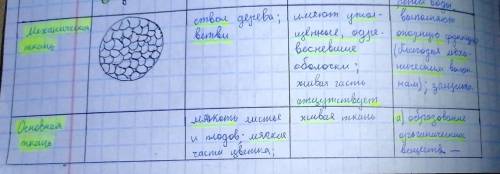 речи воды
Механическая
ткань
ствол дерева;
ветви
имеют утол-
щенные, одре-
весневшие
оболочки;
живая часть
отсутствует
выполняют
опорную функцию
(благодаря меха-
ническим волок-
нам); защита.
Основная
ткань
мякоть листьев
и плодов. мягкие
части цветка;
живая ткань
а) образование
органических
веществ —